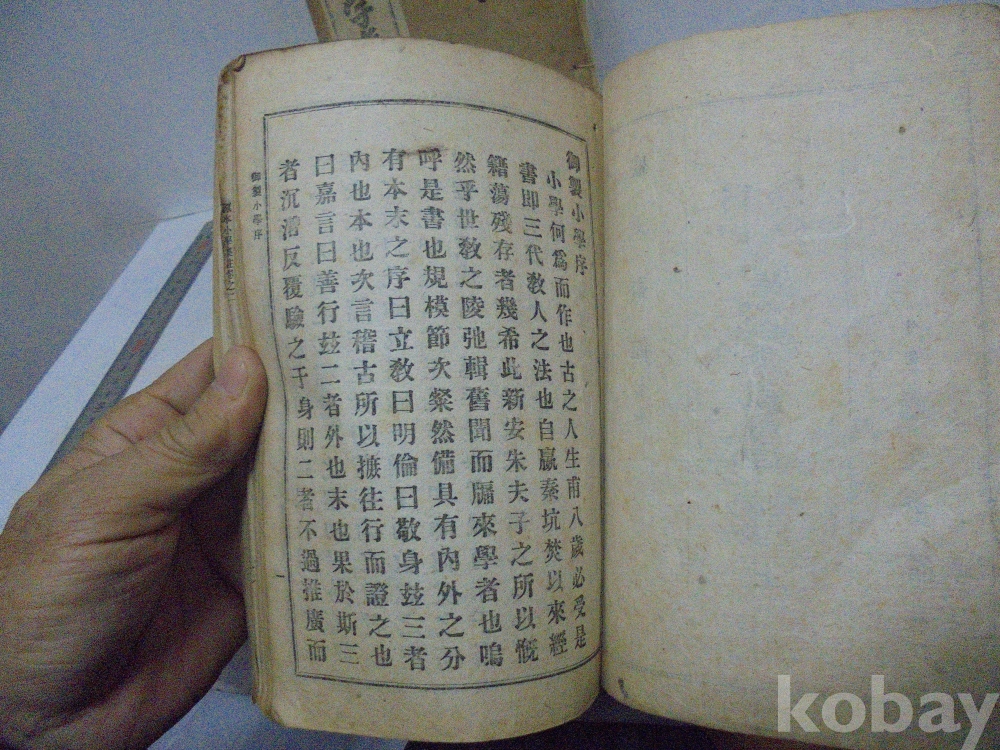 御製小學序
小學何爲而作也古之人生甫八歲必受是
書即三代敎人之法也自嬴秦坑焚以來經
籍蕩殘存者幾希此新安朱夫子之所以慨
然乎世敎之陵弛輯舊聞而牖來學者也嗚
呼是書也規模節次粲然備具有內外之分
有本末之序曰立敎曰明倫曰敬身玆三者
內也本也次言稽古所以摭往行而證之也
曰嘉言曰善行玆二者外也末也果於斯三
者沉潛反覆驗之于身則二者不過推廣而
御製小學序
一
kobay